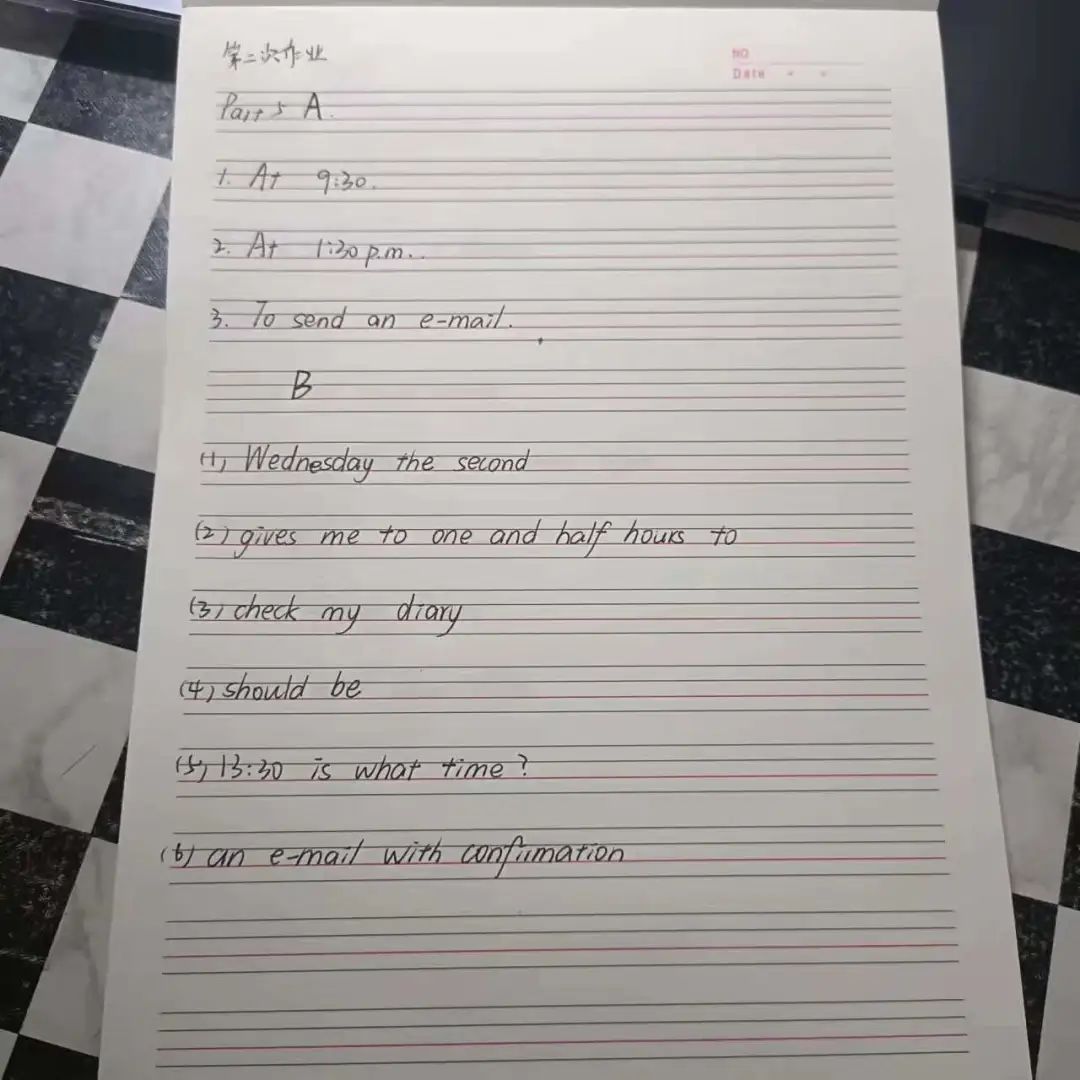 第二次作业
NO
Date
Part 5 A.
1. At 9:30.
2. At 1:30 p.m..
3. To send an e-mail.
B
(1) Wednesday the second
(2) gives me to one and half hours to
(3) check my diary
(4) should be
(5) 13:30 is what time?
(6) an e-mail with confiumation